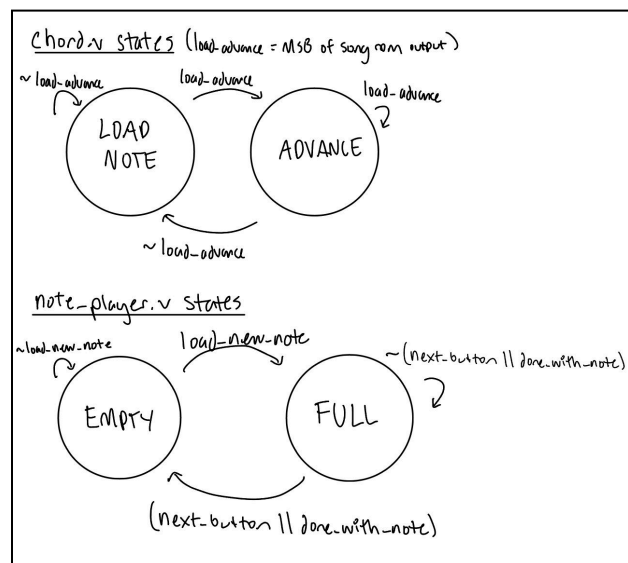 chord.v states (load_advance = MSB of song rom output)
~load_advance
load_advance
load_advance
LOAD
NOTE
ADVANCE
~load_advance
note_player.v states
~load_new_note
load_new_note
~(next_button || done_with_note)
EMPTY
FULL
(next_button || done_with_note)